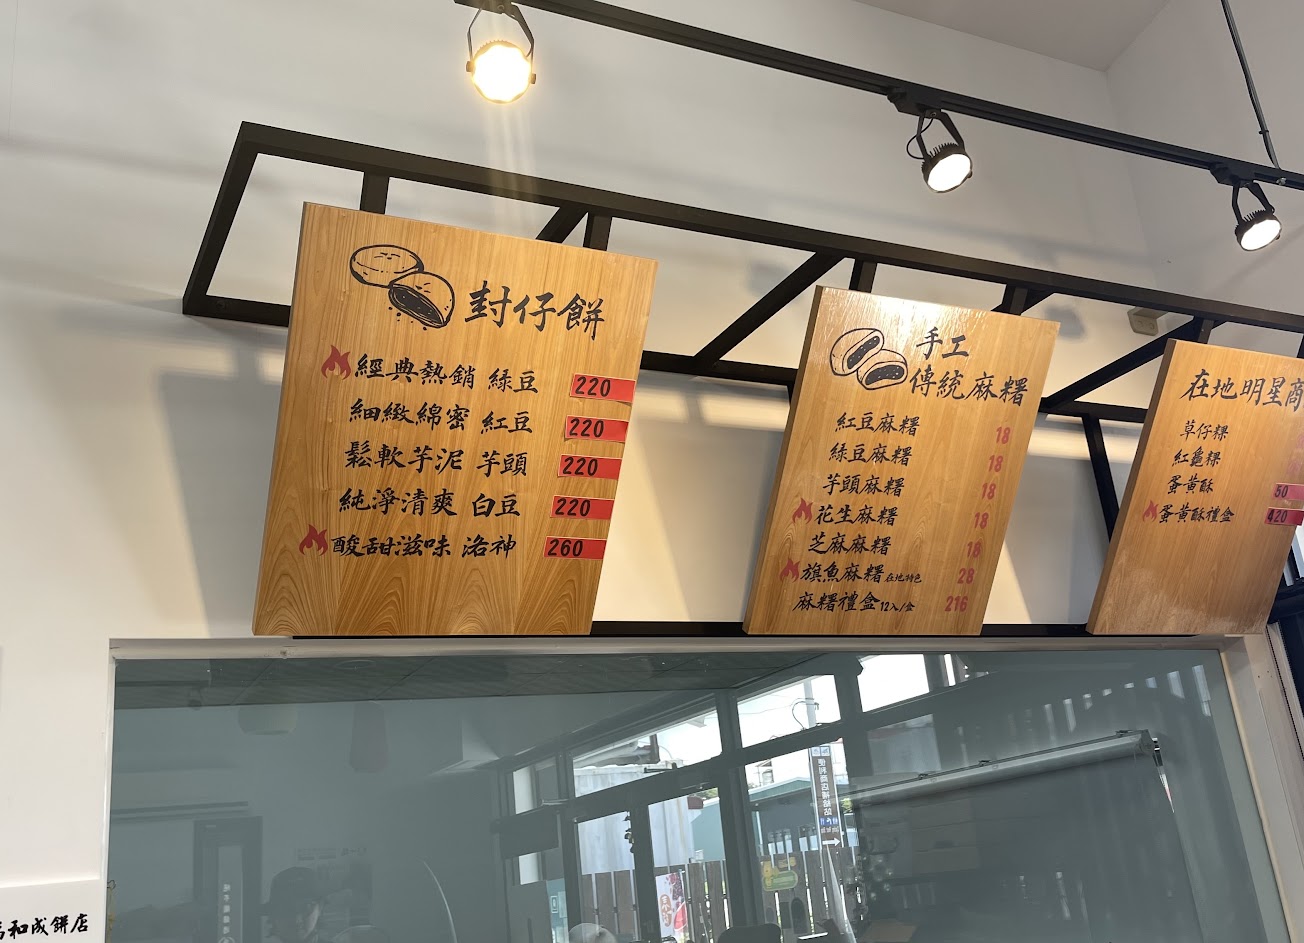 封仔餅
經典熱銷 綠豆 220
細緻綿密 紅豆 220
鬆軟芋泥 芋頭 220
純淨清爽 白豆 220
酸甜滋味 洛神 260
手工
傳統麻糬
紅豆麻糬 18
綠豆麻糬 18
芋頭麻糬 18
花生麻糬 18
芝麻麻糬 18
旗魚麻糬 在地特色 28
麻糬禮盒 12入/盒 216
在地明星商
草仔粿
紅龜粿
蛋黃酥 50
蛋黃酥禮盒 420
便利商店補給站
和成餅店